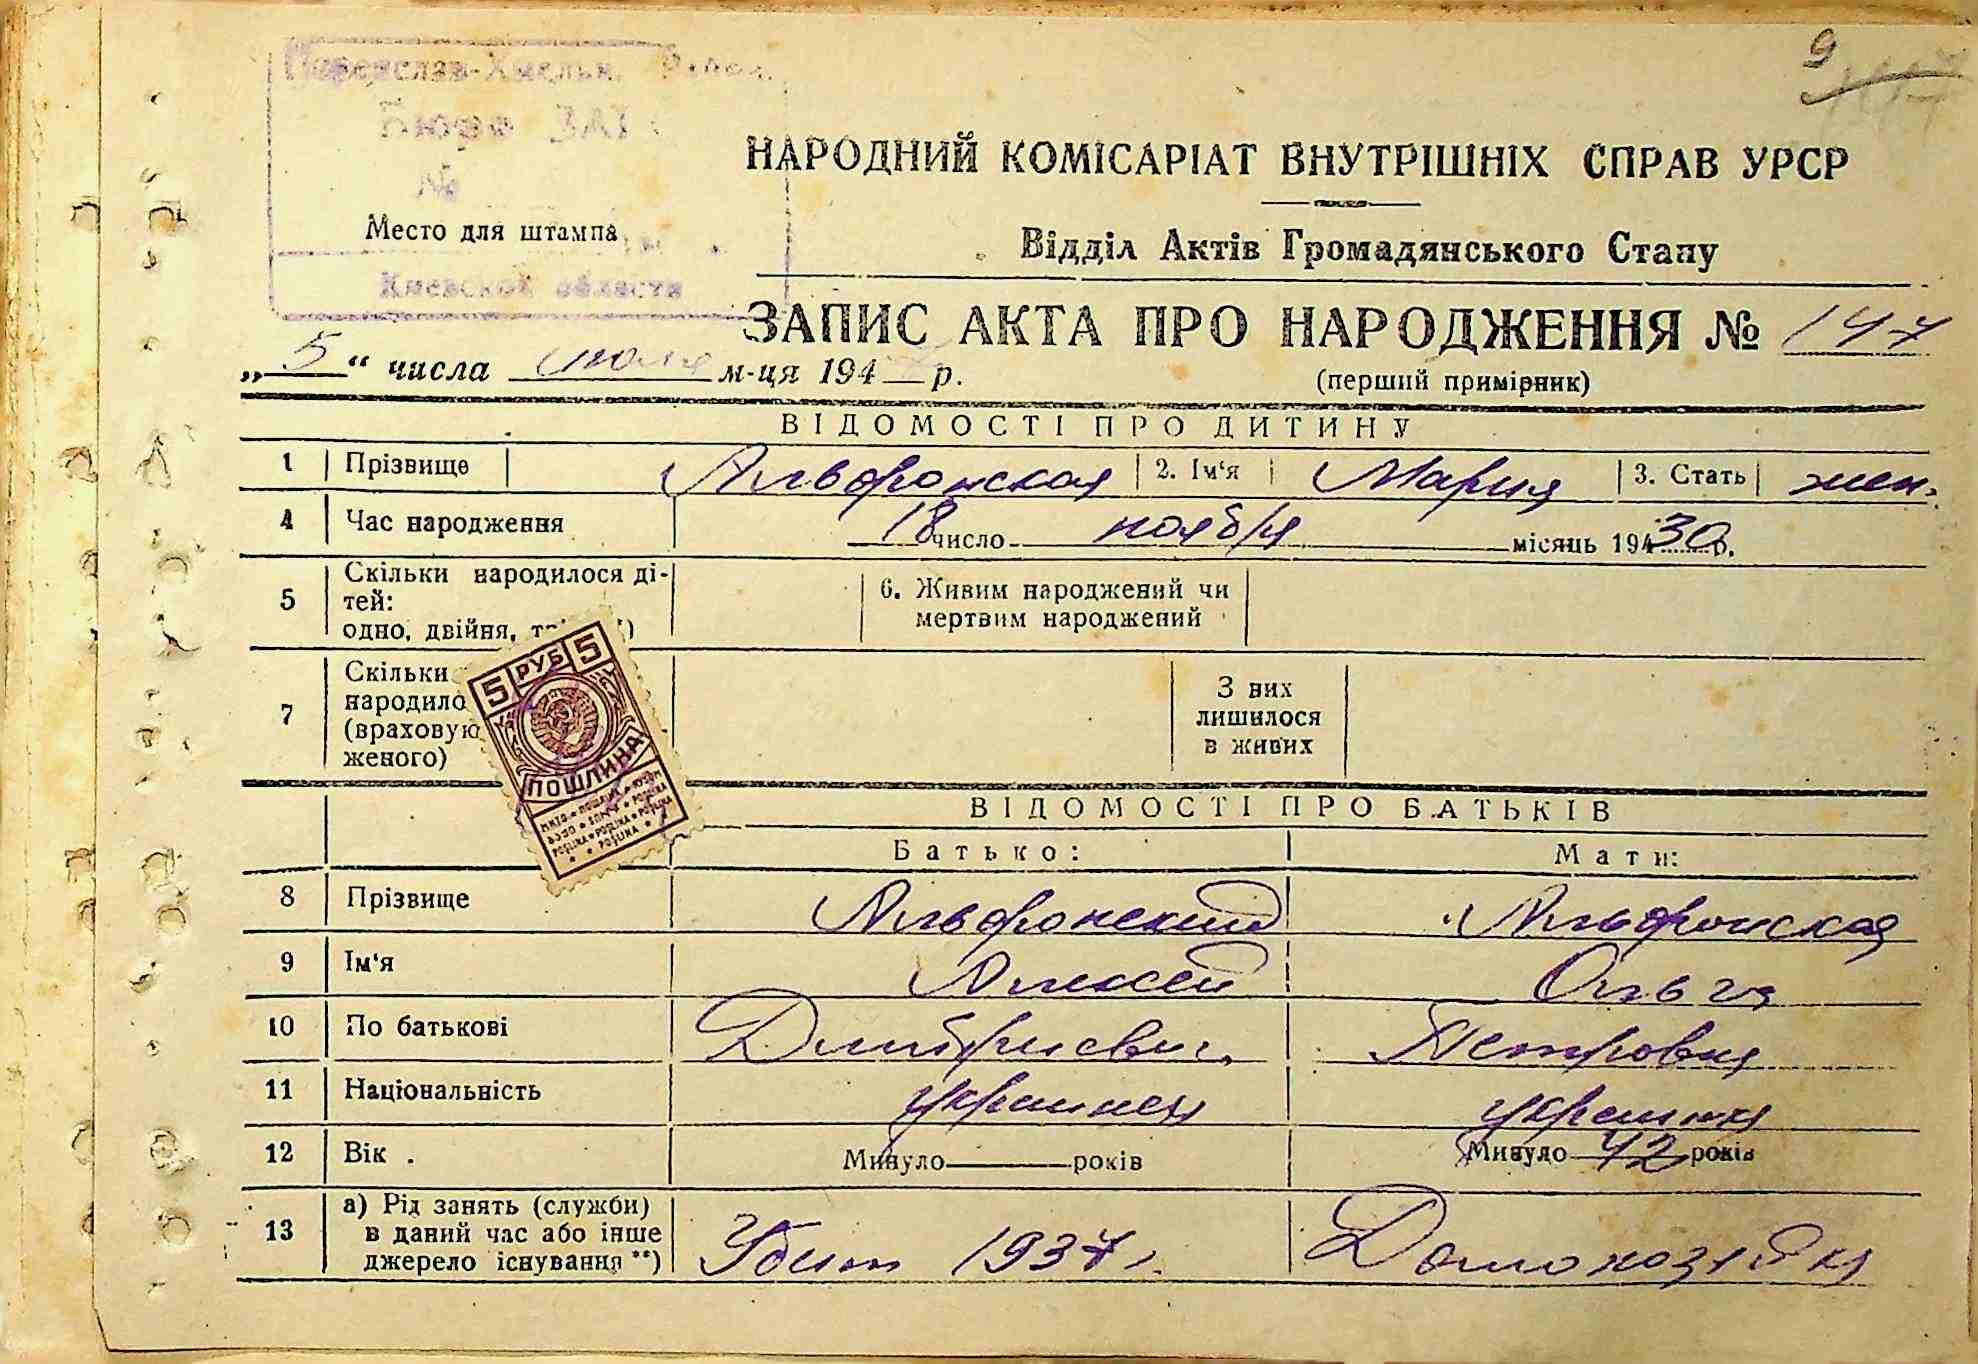 9
Переяслав-Хмельн. Район.
Бюро ЗАГС
№
Место для штампа
Киевской области
НАРОДНИЙ КОМІСАРІАТ ВНУТРІШНІХ СПРАВ УРСР
Відділ Актів Громадянського Стану
ЗАПИС АКТА ПРО НАРОДЖЕННЯ № 147
„5“ числа июля м-ця 194 р.
(перший примірник)
ВІДОМОСТІ ПРО ДИТИНУ
1 Прізвище Альвронская 2. Ім‘я Мария 3. Стать жен.
4 Час народження 18 число ноября місяць 194 30 р.
5 Скільки народилося ді-
тей:
одно, двійня,
6. Живим народжений чи
мертвим народжений
7 Скільки
народило
(враховую
женого)
З них
лишилося
в живих
5 РУБ 5
ПОШЛИНА
ВІДОМОСТІ ПРО БАТЬКІВ
Батько: Мати:
8 Прізвище Альвронский Альвронская
9 Ім‘я Алексей Ольга
10 По батькові Дмитриевич Петровна
11 Національність украинец украинка
12 Вік . Минуло років Минуло 42 років
13 а) Рід занять (служби)
в даний час або інше
джерело існування **)
Убит 1937 г. Домохозяйка